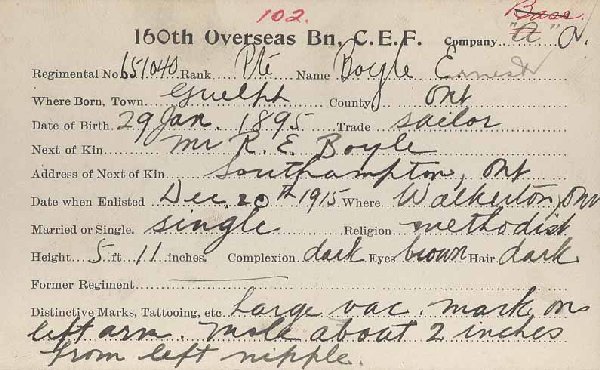 102.
Base
160th Overseas Bn, C.E.F. Company "A" D.
Regimental No. 651040 Rank Pte Name Boyle Ernest
Where Born, Town Guelph County Ont
Date of Birth 29 Jan. 1895 Trade sailor
Next of Kin Mr R. E. Boyle
Address of Next of Kin Southampton, Ont
Date when Enlisted Dec. 20th 1915 Where Walkerton, Ont
Married or Single. single Religion methodist
Height 5 ft 11 inches. Complexion dark Eyes brown Hair dark
Former Regiment
Distinctive Marks, Tattooing, etc. Large vac. mark on
left arm. Mole about 2 inches
from left nipple.